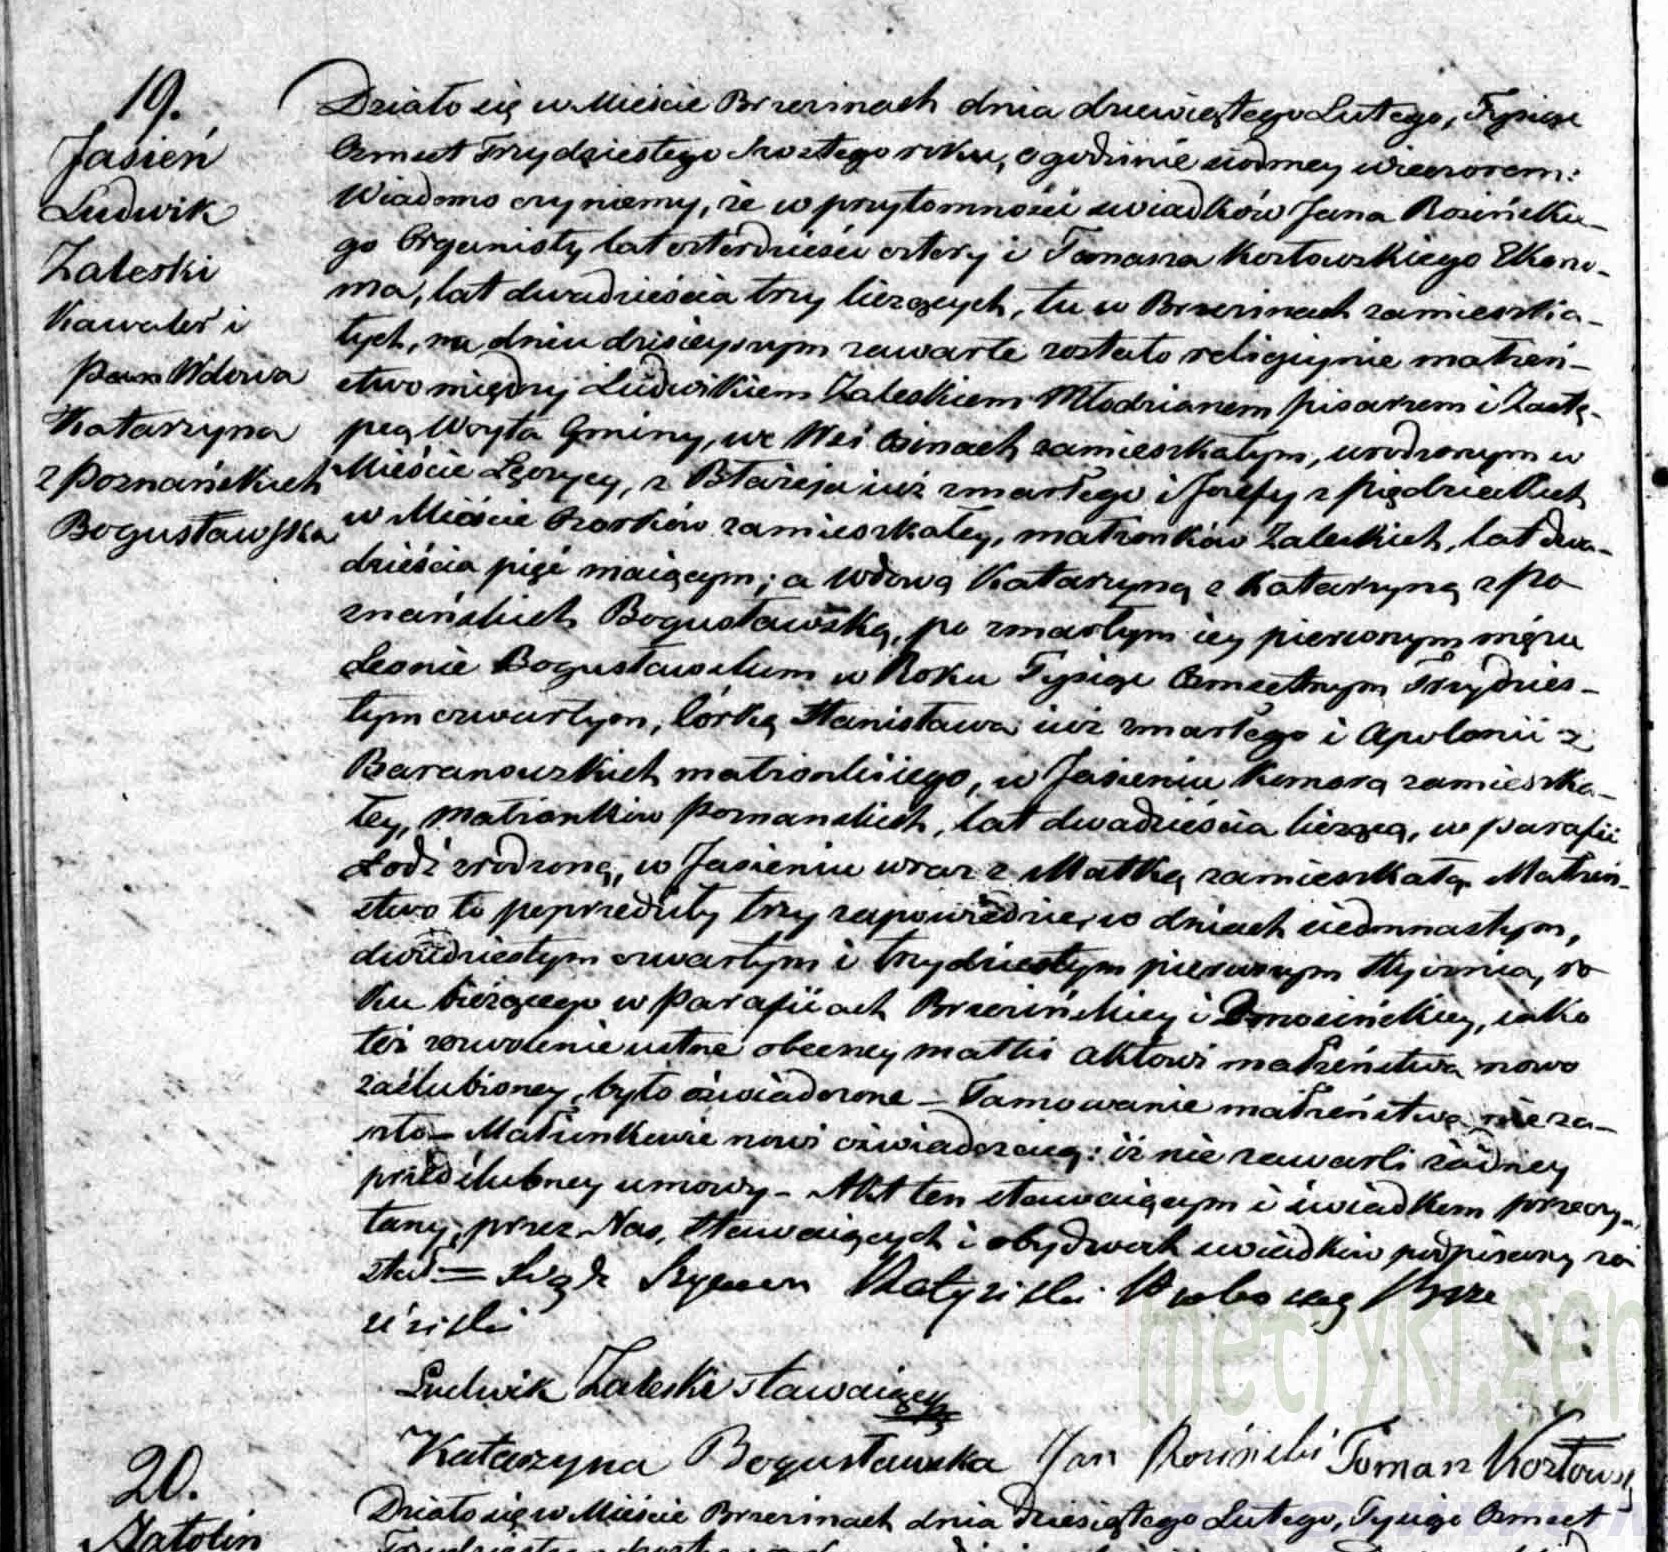 19.
Jasień
Ludwik
Zaleski
Kawaler i
Wdowa
Katarzyna
z Poznańskich
Bogusławska
Działo się w Mieście Brzezinach dnia dziewiątego Lutego, Tysiąc
Ośmset Trzydziestego Szostego roku, o godzinie siodmey wieczorem:
Wiadomo czyniemy, że w przytomności swiadków Jana Rosińskie-
go Organisty lat czterdzieści cztery i Tomasza Kozłowskiego Ekono-
ma, lat dwadzieścia trzy liczących, tu w Brzezinach zamieszka-
łych, na dniu dzisieyszym zawarte zostało religiynie małżeń-
stwo między Ludwikiem Zaleskiem Młodzianem pisarzem i Zastę-
pcą Woyta Gminy, we Wsi Osinach zamieszkałym, urodzonym w
Mieście Łęczycy, z Błażeja iuż zmarłego i Jozefy z
w Mieście Ozorków zamieszkałey, małżonków Zaleskich, lat dwa-
dzieścia pięć maiącym; a Wdową Katarzyną z Katarzyną z Po
znańskich Bogusławską, po zmarłym iey pierwszym mężu
Leonie Bogusławskim w Roku Tysiąc Ośmsetnym Trzydzies-
tym czwartym, Córką Stanisława iuż zmarłego i Apolonii z
Baranowskich w Jasieniu Komorą zamieszka-
łey, Małżonków Poznanskich, lat dwadzieścia liczącą, w parafii
Łodź zrodzoną, w Jasieniu wraz z Matką zamieszkałą. Małżeń-
stwo to poprzedziły trzy zapowiedzie, w dniach siedmnastym,
dwudziestym czwartym i trzydziestym pierwszym Stycznia, ro
ku bieżącego w Parafiiach Brzezińskiey i Dmosińskiey, iako
też zezwolenie ustne obecney matki aktowi małżeństwa nowo
zaślubioney, było oświadczone – Tamowanie małżeństwa nie za-
szło – Małżonkowie nowi oświadczaią: iż nie zawarli żadney
przedślubney umowy – Akt ten stawaiącym i świadkom przeczy-
tany, przez Nas, Stawaiących i obydwoch swiadków podpisany zo
stał = Xiądz Szymon Proboszcz Brze
ziński
Ludwik Zaleski stawaiący
Katarzyna Bogusławska Jan Rosiński Tomasz Kozłowsk
metryki.gen
20.
Natolin
Działo się w Mieście Brzezinach dnia dziesiątego Lutego, Tysiąc Ośmset